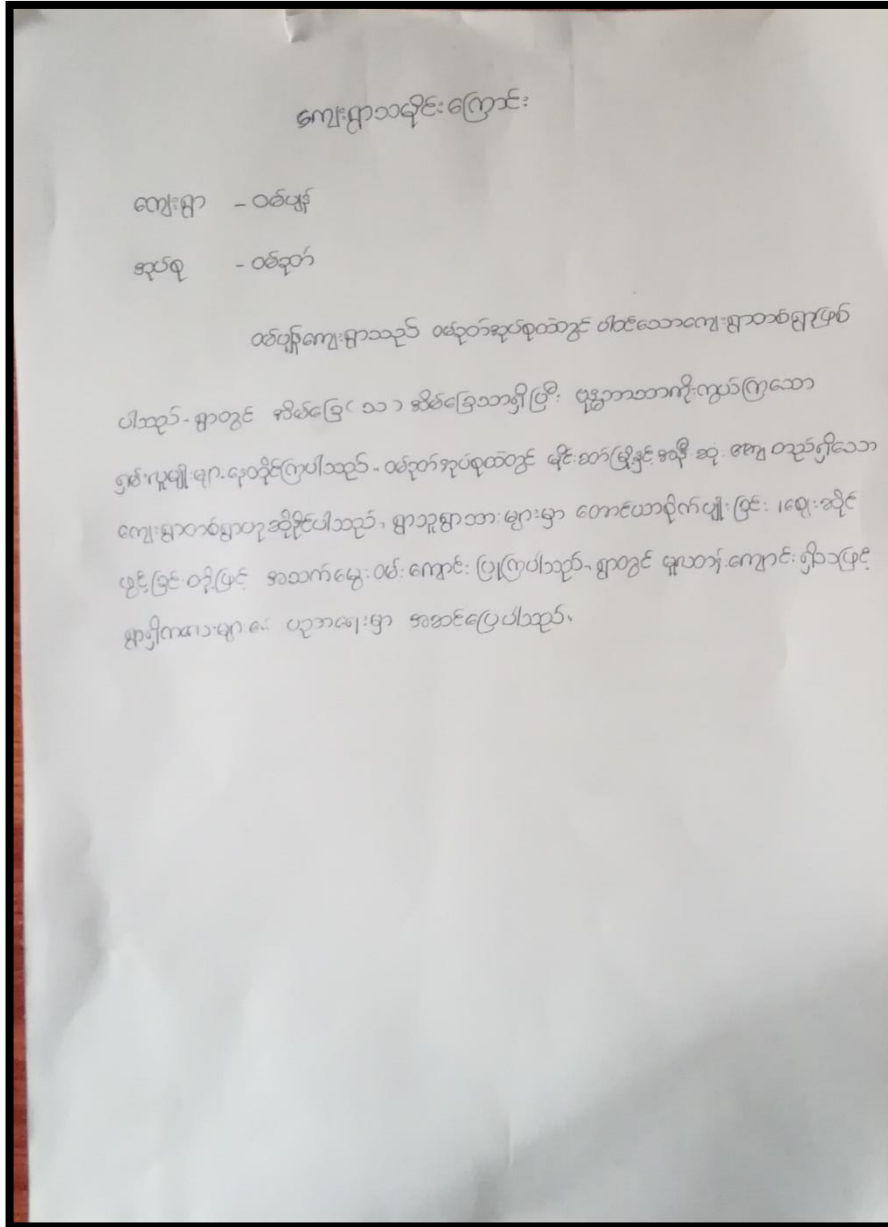 ကျေးရွာသမိုင်းကြောင်း
ကျေးရွာ - ဝမ်ပျဉ်
အုပ်စု - ဝမ်ဉတ်
ကျေးရွာသည် ဝမ်ဉတ်အုပ်စုထဲတွင် ပါဝင်သောကျေးရွာတစ်ရွာဖြစ်
ပါသည်။ ရွာတွင် အိမ်ခြေ ( ၁၁ ) အိမ်ခြေသာရှိပြီး ဗုဒ္ဓဘာသာကိုးကွယ်ကြသော
ရှမ်းလူမျိုးများ နေထိုင်ကြပါသည်။ ဝမ်ဉတ်အုပ်စုထဲတွင် မိုင်းဆတ်မြို့နှင့် အနီးဆုံး တည်ရှိသော
ကျေးရွာတစ်ရွာဟုဆိုနိုင်ပါသည်။ ရွာသူရွာသားများမှာ တောင်ယာစိုက်ပျိုးခြင်း ၊ ဈေးဆိုင်
ဖွင့်ခြင်းတို့ဖြင့် အသက်မွေးဝမ်းကျောင်း ပြုကြပါသည်။ ရွာတွင် မူလတန်းကျောင်း ရှိသဖြင့်
ရွာရှိကလေးများ၏ ပညာရေးမှာ အဆင်ပြေပါသည်။